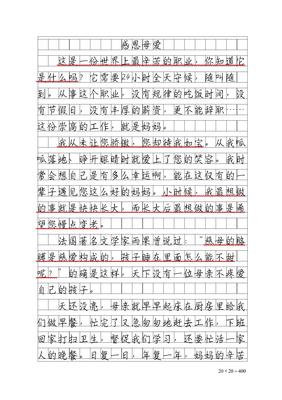 感恩母爱
这是一份世界上最辛苦的职业，你知道它
是什么吗？它需要24小时全天守候，随叫随
到。从事这个职业，没有规律的吃饭时间，没
有节假日，没有丰厚的薪资，更不能辞职……
这份崇高的工作，就是妈妈。
我从未让您骄傲，您却待我如宝。从我呱
呱落地、睁开眼睛时就爱上了您的笑容。我时
常会想自己是有多么幸运啊，能在这仅有的一
辈子遇见您这么好的妈妈。小时候，我最想做
的事就是快快长大，而长大后最想做的事是希
望您慢点变老。
法国著名文学家雨果曾说过：“慈母的胳
膊是慈爱构成的，孩子睡在里面怎么能不甜
呢？”的确是这样，天下没有一位母亲不疼爱
自己的孩子。
天还没亮，母亲就早早起床在厨房里给我
们做早餐，忙完了又急匆匆地赶去工作，下班
回家打扫卫生，督促我们学习，还要忙活一家
人的晚餐。日复一日，年复一年，妈妈的辛苦
20×20=400